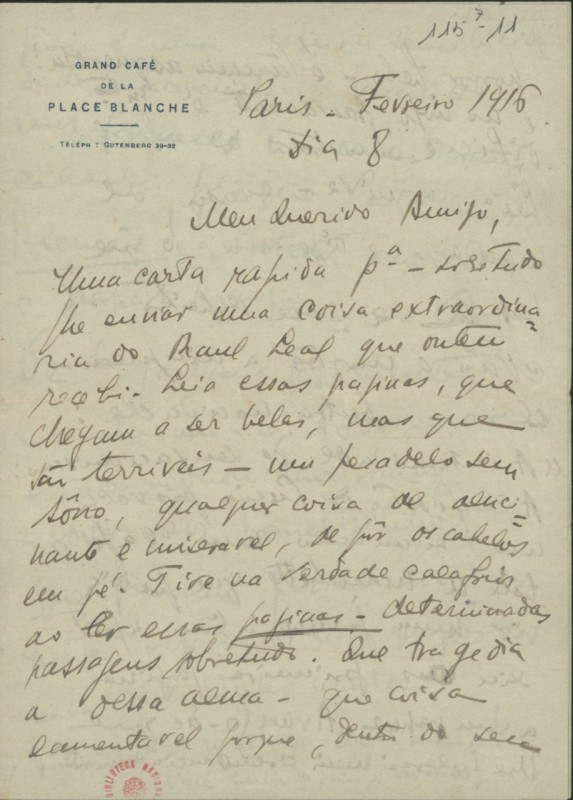 115⁷-11
GRAND CAFÉ
DE LA
PLACE BLANCHE
TÉLÉPH : GUTENBERG 39-32
Paris - Fevreiro 1916
Dia 8
Meu Querido Amigo,
Uma carta rapida pª - sobretudo
lhe enviar uma coisa extraordina
ria do Raul Leal que ontem
recebi. Leia essas paginas, que
chegam a ser belas, mas que
são terriveis - um pesadelo sem
sôno, qualquer coisa de aluci-
nante e miseravel, de pôr os cabelos
em pé. Tive na verdade calafrios
ao ler essas paginas - determinadas
passagens sobretudo. Que tragedia
a dessa alma - que coisa
lamentavel porque, dentro do seu
BIBLIOTECA NACIONAL